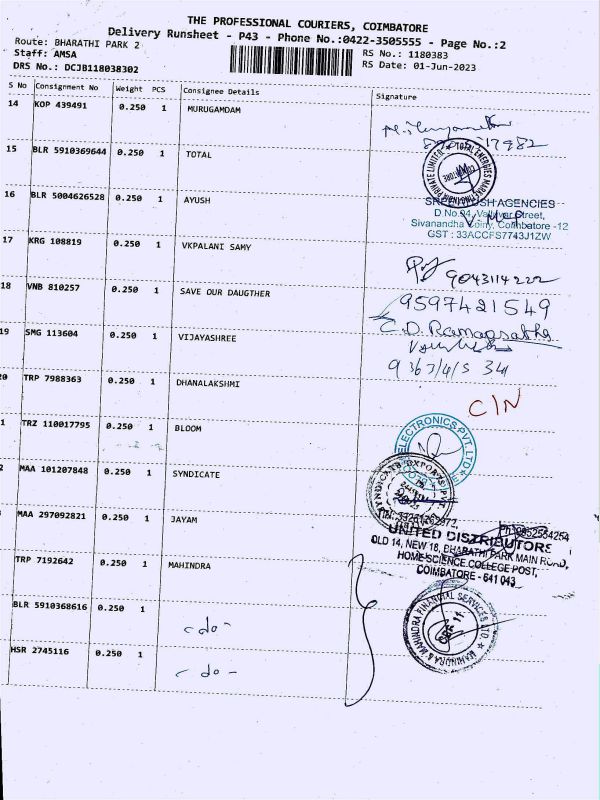 THE PROFESSIONAL COURIERS, COIMBATORE
Delivery Runsheet - P43 - Phone No.:0422-3505555 - Page No.:2
Route: BHARATHI PARK 2
RS No.: 1180383
Staff: AMSA
RS Date: 01-Jun-2023
DRS No.: DCJB118038302
S No Consignment No Weight PCS Consignee Details Signature
14 KOP 439491 0.250 1 MURUGAMDAM
15 BLR 5910369644 0.250 1 TOTAL
TOTAL ENERGIES MARKETING INDIA PRIVATE LIMITED
16 BLR 5004626528 0.250 1 AYUSH
AGENCIES
D.No.94, Valluvar Street,
Sivanandha Colny, Coimbatore -12
GST : 33ACCFS7743J1ZW
17 KRG 108819 0.250 1 VKPALANI SAMY
9043114222
18 VNB 810257 0.250 1 SAVE OUR DAUGTHER
9597421549
19 SMG 113604 0.250 1 VIJAYASHREE
20 TRP 7988363 0.250 1 DHANALAKSHMI
C/N
1 TRZ 110017795 0.250 1 BLOOM
ELECTRONICS PVT. LTD
2 MAA 101207848 0.250 1 SYNDICATE
SYNDICATE EXPORTS PVT.
MAA 297092821 0.250 1 JAYAM
UNITED DISTRIBUTORS
OLD 14, NEW 18, BHARATHI PARK MAIN Road,
HOME SCIENCE COLLEGE POST,
COIMBATORE - 641 043
TRP 7192642 0.250 1 MAHINDRA
MAHINDRA & MAHINDRA FINANCIAL SERVICES LTD
CBE 11
BLR 5910368616 0.250 1 - do -
HSR 2745116 0.250 1 - do -